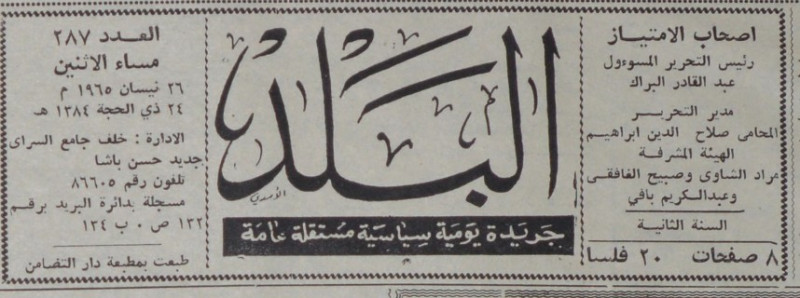 اصحاب الامتياز
رئيس التحرير المسوءول
عبد القادر البراك
مدير التحرير
المحامى صلاح الدين ابراهيم
الهيئة المشرفة
مراد الشاوى وصبيح الغافقى
وعبدالكريم بافي
السنة الثانية
٨ صفحات ٢٠ فلسا
البلد
جريدة يومية سياسية مستقلة عامة
العدد ٢٨٧
مساء الاثنين
٢٦ نيسان ١٩٦٥ م
٢٤ ذي الحجة ١٣٨٤ هـ
الادارة : خلف جامع السراى
جديد حسن باشا
تلفون رقم ٨٦٦٠٥
مسجلة بدائرة البريد برقم
١٣٢ ص ٠ ب ١٣٤
طبعت بمطبعة دار التضامن